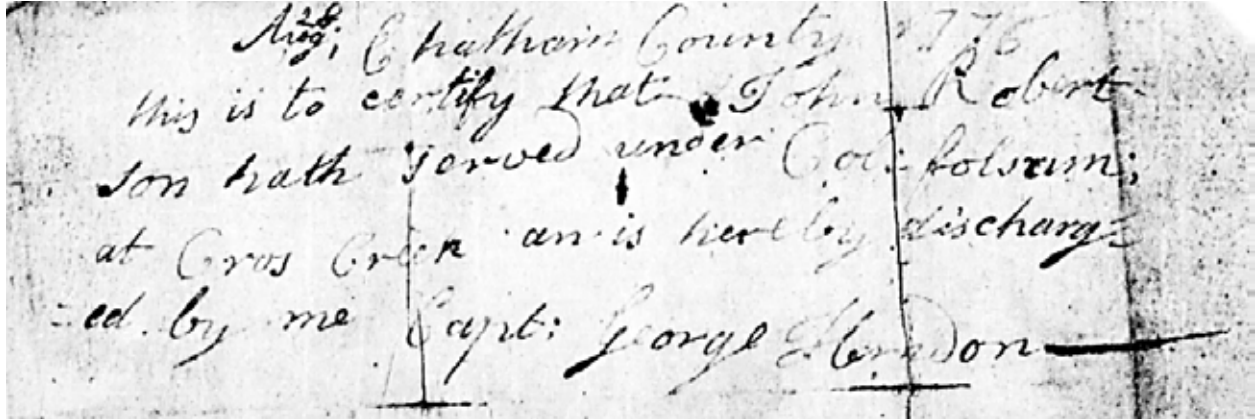 Aug; Chatham County 1776
this is to certify that John Robert-
son hath served under Col: folsum;
at Cros Creek an is hereby discharg=
=ed by me Capt: George Herndon